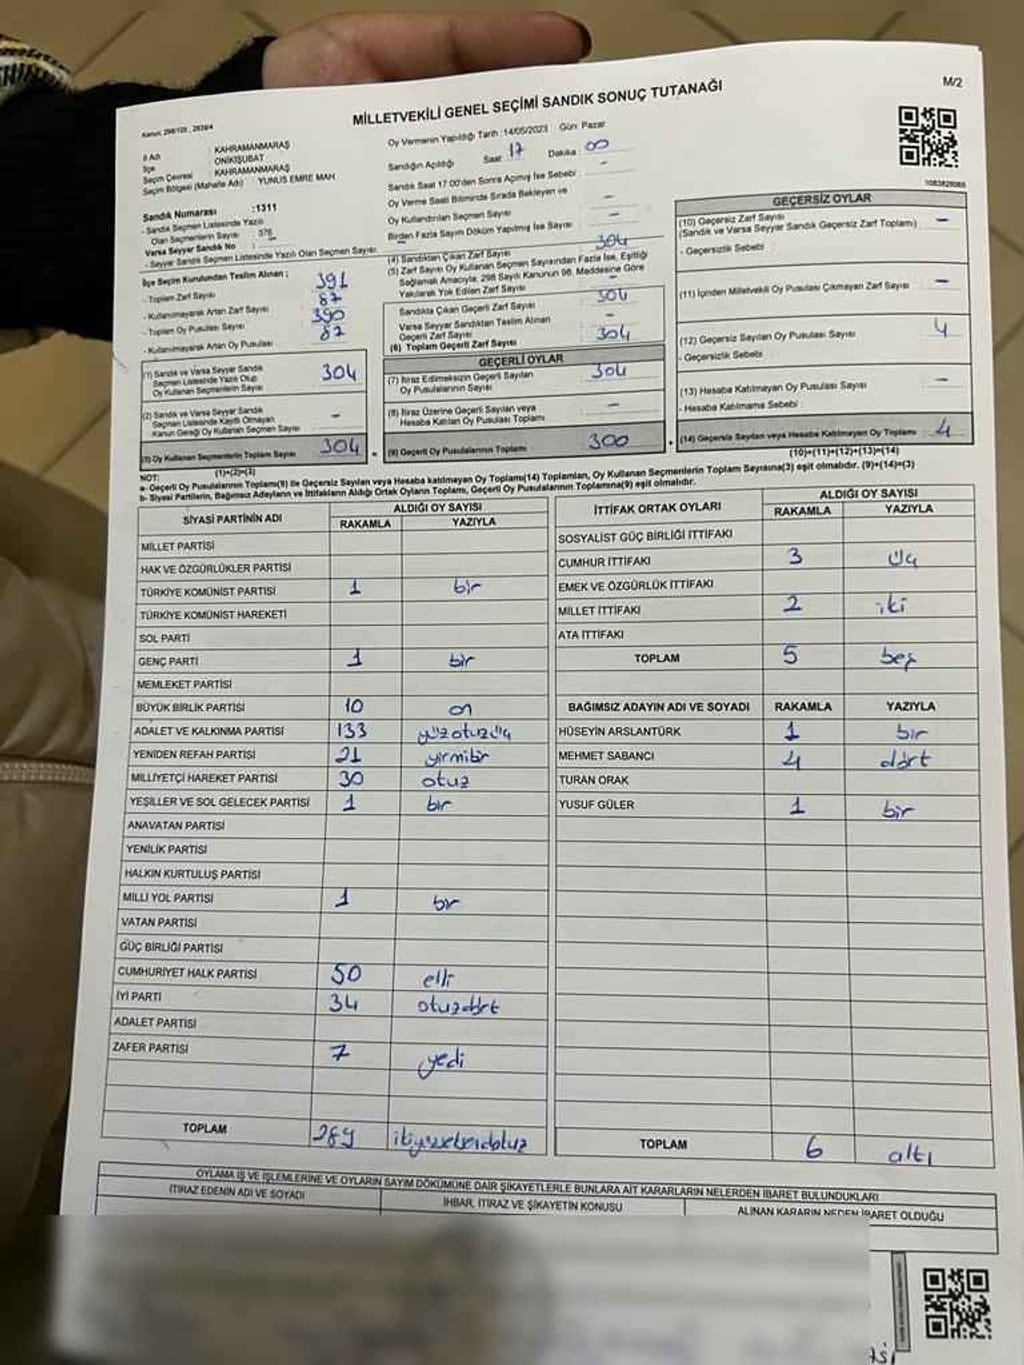 M/2
MİLLETVEKİLİ GENEL SEÇİMİ SANDIK SONUÇ TUTANAĞI
İl Adı : KAHRAMANMARAŞ
İlçe : ONİKİŞUBAT
Seçim Çevresi : KAHRAMANMARAŞ
Seçim Bölgesi (Mahalle Adı) : YUNUS EMRE MAH
Sandık Numarası :1311
- Sandık Seçmen Listesinde Yazılı
Olan Seçmenlerin Sayısı : 376
Varsa Seyyar Sandık No :
- Seyyar Sandık Seçmen Listesinde Yazılı Olan Seçmen Sayısı
İlçe Seçim Kurulundan Teslim Alınan ;
- Toplam Zarf Sayısı 391
- Kullanılmayarak Artan Zarf Sayısı 87
- Toplam Oy Pusulası Sayısı 390
- Kullanılmayarak Artan Oy Pusulası 87
(1) Sandık ve Varsa Seyyar Sandık
Seçmen Listesinde Yazılı Olup
Oy Kullanan Seçmenlerin Sayısı 304
(2) Sandık ve Varsa Seyyar Sandık
Seçmen Listesinde Kayıtlı Olmayan
Kanun Gereği Oy Kullanan Seçmen Sayısı -
(3) Oy Kullanan Seçmenlerin Toplam Sayısı 304
(1)+(2)=(3)
Oy Vermenin Yapıldığı Tarih :14/05/2023 Gün: Pazar
Sandığın Açıldığı Saat 17 Dakika 00
Sandık Saat 17:00'den Sonra Açılmış İse Sebebi -
Oy Verme Saati Bitiminde Sırada Bekleyen ve
Oy Kullandırılan Seçmen Sayısı -
Birden Fazla Sayım Döküm Yapılmış İse Sayısı -
(4) Sandıktan Çıkan Zarf Sayısı 304
(5) Zarf Sayısı Oy Kullanan Seçmen Sayısından Fazla İse, Eşitliği
Sağlamak Amacıyla, 298 Sayılı Kanunun 98. Maddesine Göre
Yakılarak Yok Edilen Zarf Sayısı -
Sandıkta Çıkan Geçerli Zarf Sayısı 304
Varsa Seyyar Sandıktan Teslim Alınan
Geçerli Zarf Sayısı -
(6) Toplam Geçerli Zarf Sayısı 304
GEÇERLİ OYLAR
(7) İtiraz Edilmeksizin Geçerli Sayılan
Oy Pusulalarının Sayısı 304
(8) İtiraz Üzerine Geçerli Sayılan veya
Hesaba Katılan Oy Pusulası Toplamı -
(9) Geçerli Oy Pusulalarının Toplamı 300
GEÇERSİZ OYLAR
(10) Geçersiz Zarf Sayısı -
(Sandık ve Varsa Seyyar Sandık Geçersiz Zarf Toplamı)
- Geçersizlik Sebebi :
(11) İçinden Milletvekili Oy Pusulası Çıkmayan Zarf Sayısı -
(12) Geçersiz Sayılan Oy Pusulası Sayısı 4
- Geçersizlik Sebebi :
(13) Hesaba Katılmayan Oy Pusulası Sayısı -
- Hesaba Katılmama Sebebi :
(14) Geçersiz Sayılan veya Hesaba Katılmayan Oy Toplamı 4
(10)+(11)+(12)+(13)=(14)
NOT:
a- Geçerli Oy Pusulalarının Toplamı(9) ile Geçersiz Sayılan veya Hesaba katılmayan Oy Toplamı(14) Toplamları, Oy Kullanan Seçmenlerin Toplam Sayısına(3) eşit olmalıdır. (9)+(14)=(3)
b- Siyasi Partilerin, Bağımsız Adayların ve İttifakların Aldığı Ortak Oyların Toplamı, Geçerli Oy Pusulalarının Toplamına(9) eşit olmalıdır.
SİYASİ PARTİNİN ADI ALDIĞI OY SAYISI
RAKAMLA YAZIYLA
MİLLET PARTİSİ
HAK VE ÖZGÜRLÜKLER PARTİSİ
TÜRKİYE KOMÜNİST PARTİSİ 1 bir
TÜRKİYE KOMÜNİST HAREKETİ
SOL PARTİ
GENÇ PARTİ 1 bir
MEMLEKET PARTİSİ
BÜYÜK BİRLİK PARTİSİ 10 on
ADALET VE KALKINMA PARTİSİ 133 yüzotuzüç
YENİDEN REFAH PARTİSİ 21 yirmibir
MİLLİYETÇİ HAREKET PARTİSİ 30 otuz
YEŞİLLER VE SOL GELECEK PARTİSİ 1 bir
ANAVATAN PARTİSİ
YENİLİK PARTİSİ
HALKIN KURTULUŞ PARTİSİ
MİLLİ YOL PARTİSİ 1 bir
VATAN PARTİSİ
GÜÇ BİRLİĞİ PARTİSİ
CUMHURİYET HALK PARTİSİ 50 elli
İYİ PARTİ 34 otuzdört
ADALET PARTİSİ
ZAFER PARTİSİ 7 yedi
TOPLAM 289
İTTİFAK ORTAK OYLARI ALDIĞI OY SAYISI
RAKAMLA YAZIYLA
SOSYALİST GÜÇ BİRLİĞİ İTTİFAKI
CUMHUR İTTİFAKI 3 üç
EMEK VE ÖZGÜRLÜK İTTİFAKI
MİLLET İTTİFAKI 2 iki
ATA İTTİFAKI
TOPLAM 5 beş
BAĞIMSIZ ADAYIN ADI VE SOYADI RAKAMLA YAZIYLA
HÜSEYİN ARSLANTÜRK 1 bir
MEHMET SABANCI 4 dört
TURAN ORAK
YUSUF GÜLER 1 bir
TOPLAM 6 altı
OYLAMA İŞ VE İŞLEMLERİNE VE OYLARIN SAYIM DÖKÜMÜNE DAİR ŞİKAYETLERLE BUNLARA AİT KARARLARIN NELERDEN İBARET BULUNDUKLARI
İTİRAZ EDENİN ADI VE SOYADI İHBAR, İTİRAZ VE ŞİKAYETİN KONUSU ALINAN KARARIN NEDEN İBARET OLDUĞU